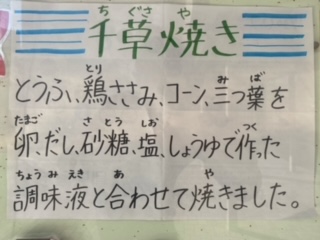 ちぐさや
千草焼き
とり み ば
とうふ、鶏ささみ、コーン、三つ葉を
たまご さとう しお つく
卵、だし、砂糖、塩、しょうゆで作った
ちょうみえき あ や
調味液と合わせて焼きました。